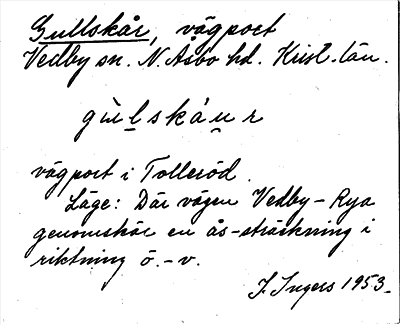 Gullskår, vägport
Vedby sn. N. Åsbo hd. Krist. län.
gùl̠skáu̯r
vägport i Tolleröd.
Läge: Där vägen Vedby - Rya
genomskär en ås-sträckning i
riktning ö. - v.
I. Ingers 1953.